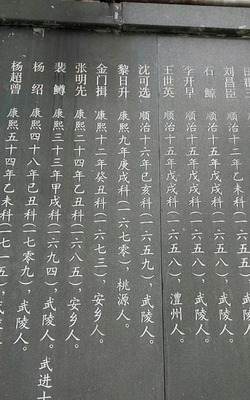 刘昌臣 顺治十二年乙未科(一
石鲸 顺治十五年戊戌科(一六五八),武陵
李开早 顺治十五年戊戌科(一六五八),武陵人。
王世英 顺治十五年戊戌科(一六五八),澧州人。
沈可选 顺治十六年己亥科(一六五九),武陵人。
黎日升 康熙九年庚戌科(一六七零),桃源人。
金门揖 康熙十二年癸丑科(一六七三),安乡人。
张明先 康熙二十四年乙丑科(一六八五),安乡人。
裴鳟 康熙三十三年甲戌科(一六九四),武陵人。武进
杨绍 康熙四十八年己丑科(一七零九),武陵人。
杨超曾 康熙五十四年乙未科(一七一五),武